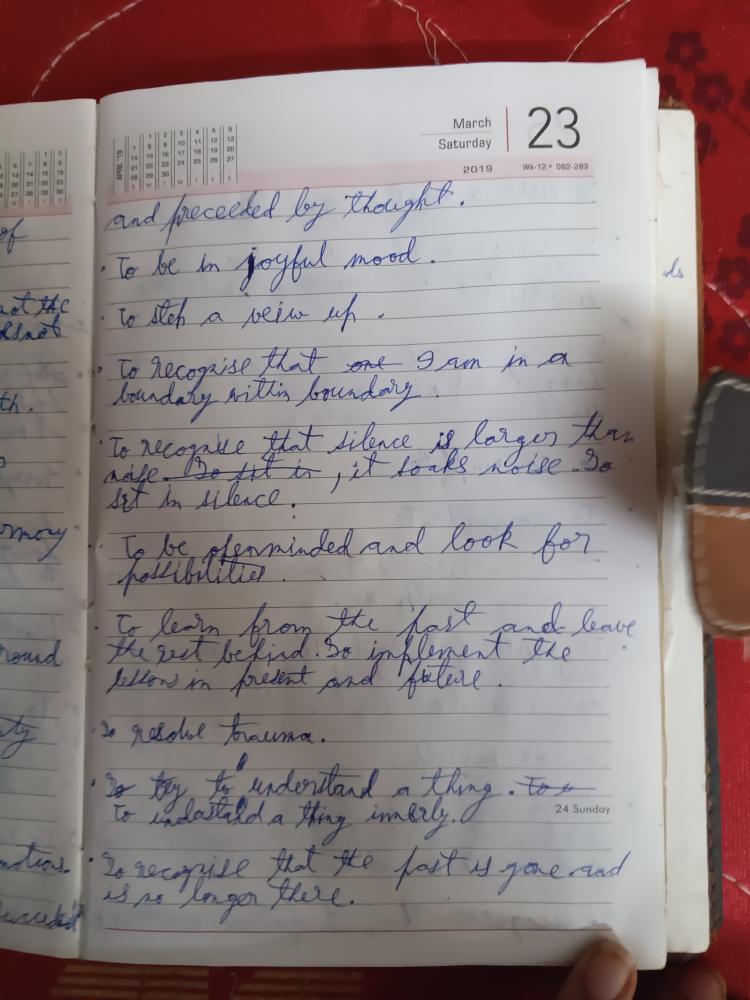 March
Saturday
23
2019
Wk-12 • 082-283
APRIL '19
and preceeded by thought.
· To be in joyful mood.
· To step a veiw up.
· To recognise that one I am in a
boundary within boundary.
· To recognise that silence is larger than
noise. So sit in, it soaks noise. So
sit in silence.
· To be openminded and look for
possibilities.
· To learn from the past and leave
the rest behind. To implement the
lessons in present and future.
· To resolve trauma.
· To try to understand a thing. To u
To undastand a thing innerly.
24 Sunday
· To recognise that the past is gone and
is no longer there.
of
not the
th.
ound